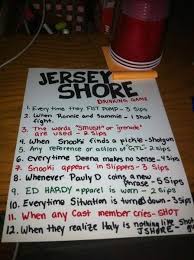 JERSEY
SHORE
DRINKING GAME
1. Every time they FIST PUMP - 3 Sips
2. When Ronnie and Sammie - 1 Shot
fight.
3. The words "Smush" or "grenade"
are used - 2 Sips
4. When Snooki finds a pickle - Shotgun
5. Any reference or action of GTL - 2 Sips
6. everytime Deena makes no sense - 4 Sips
7. Snooki appears in Slippers - 3 Sips
8. Whenever Pauly D coins a new
phrase - 5 Sips
9. ED HARDY apparel is worn - 2 Sips
10. Everytime Situation is turned down - 3
Sips
11. When any Cast member cries - SHOT
12. When they realize Italy is nothing like
JSHORE